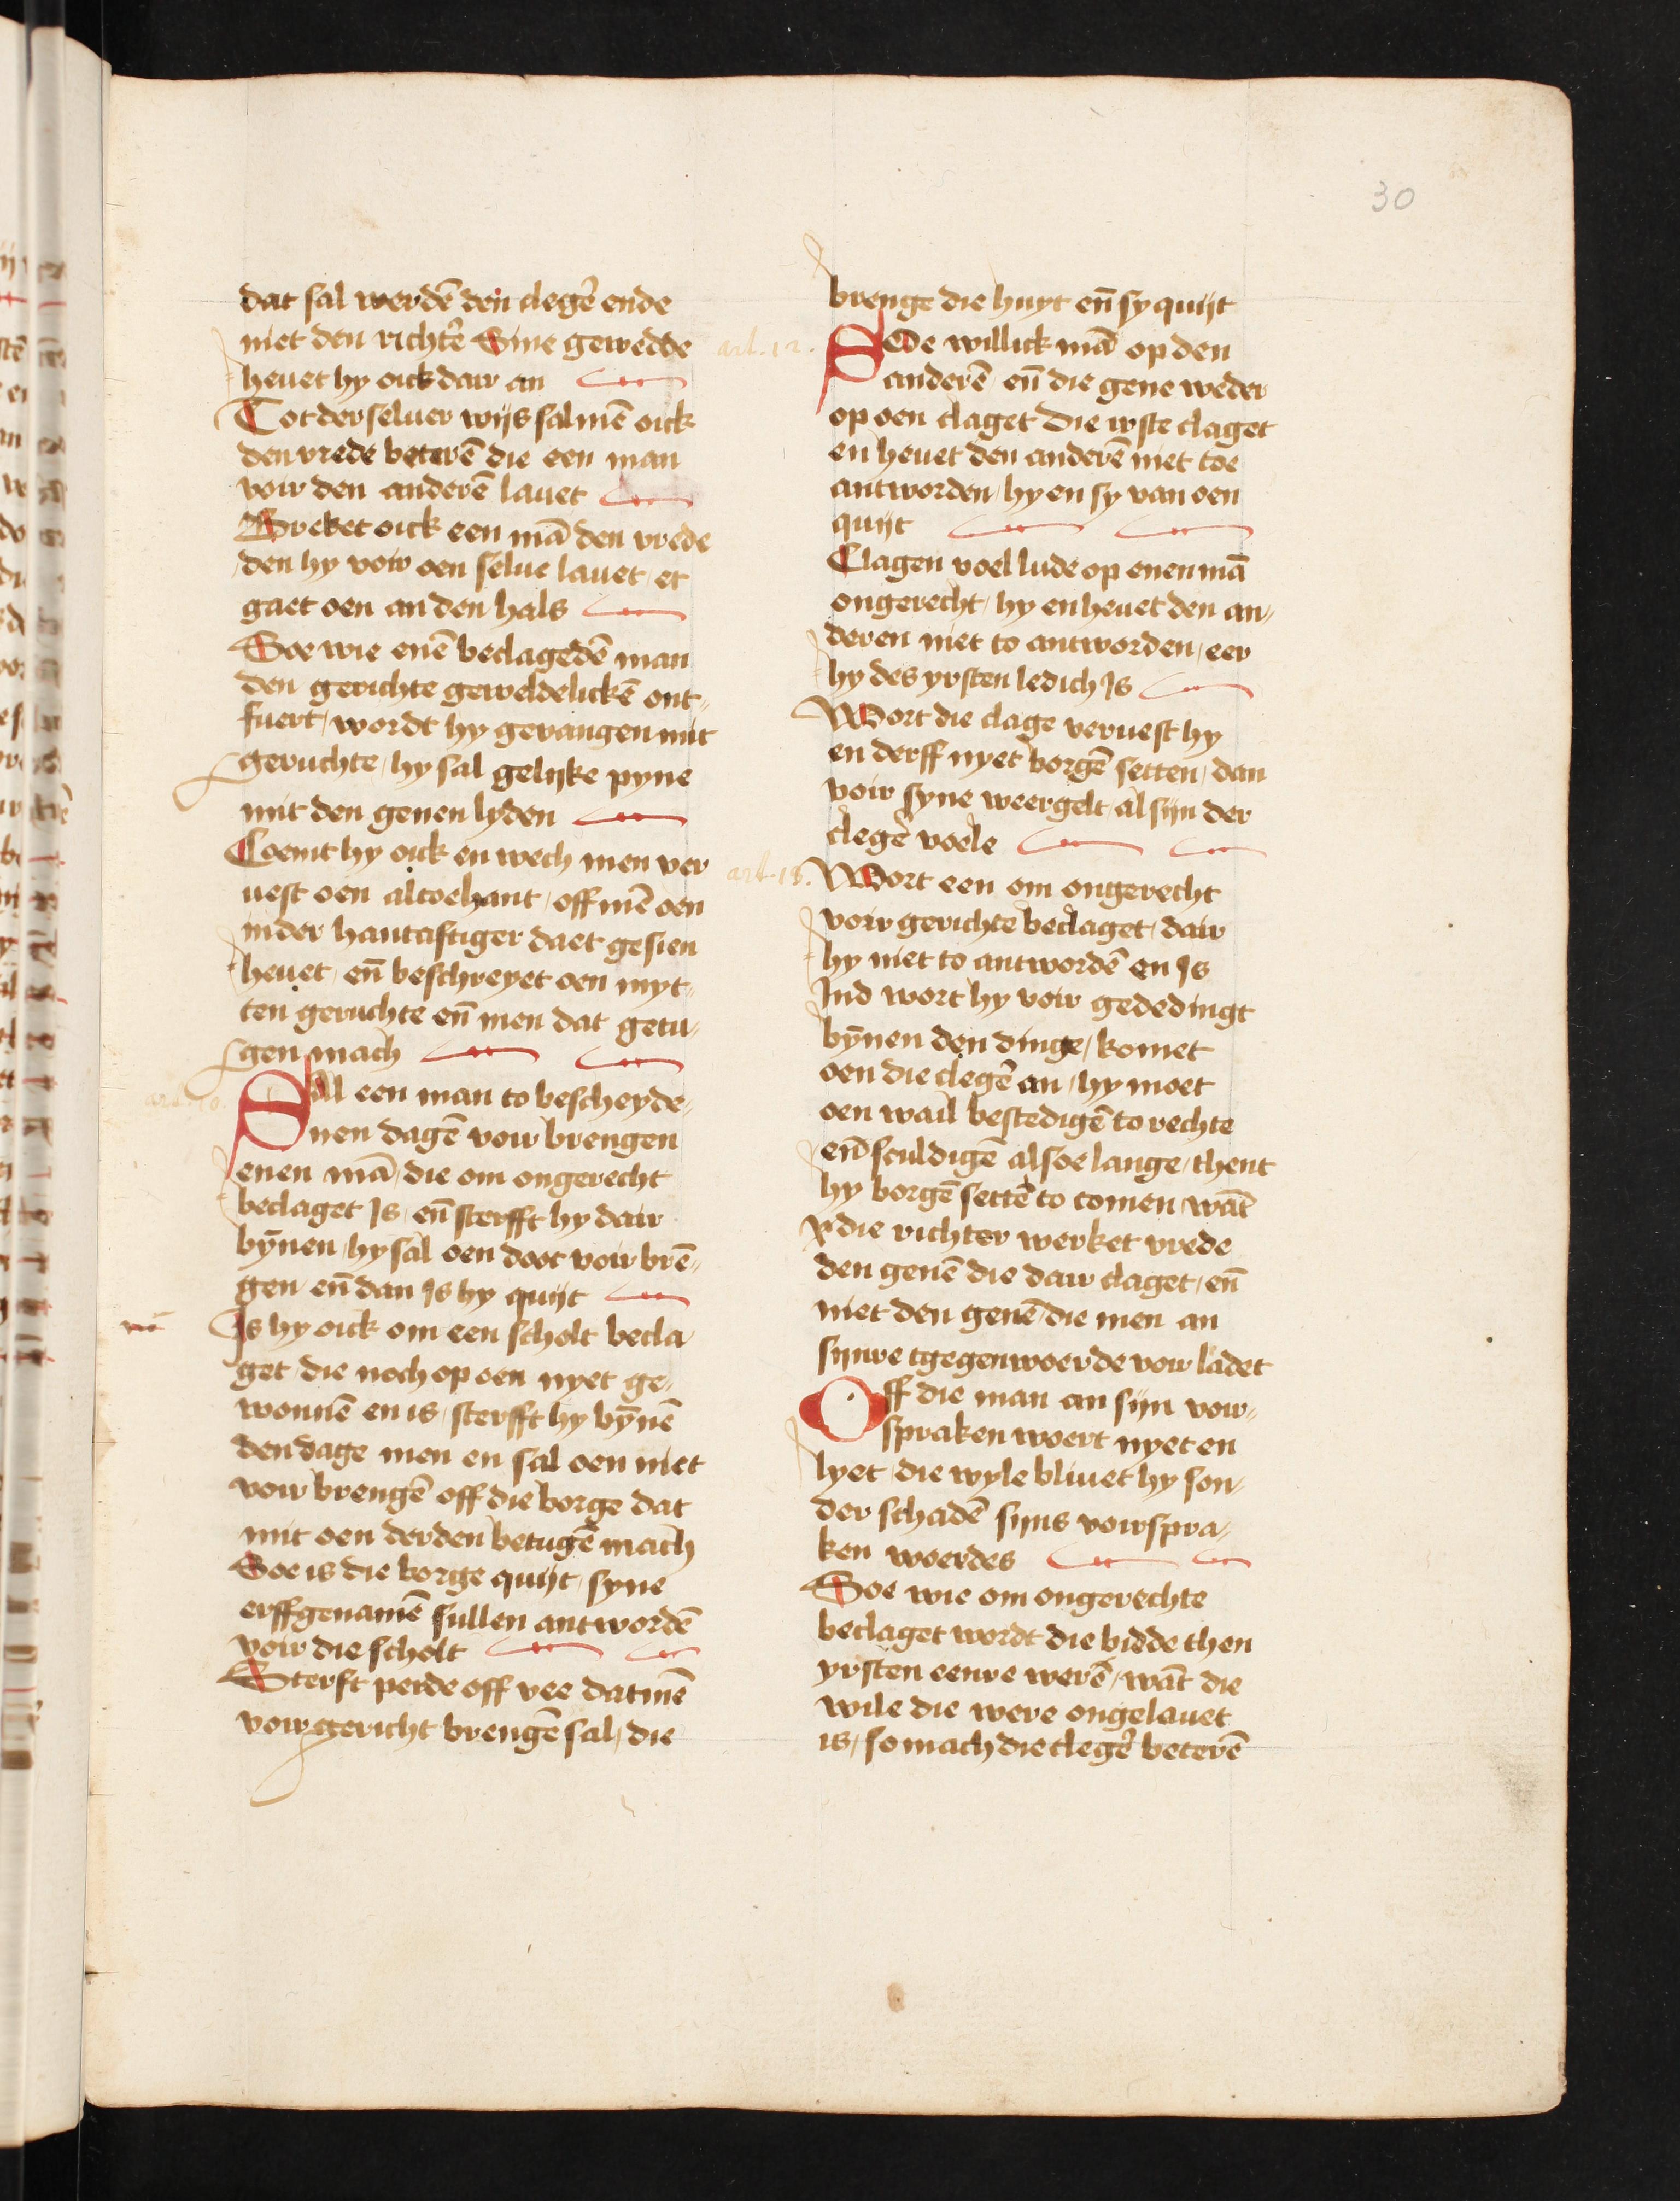 30
dat sal werdē den clegẽ ende
niet den richtẽ Sine gewedde
heuet hy oick dair an
Tot der seluer wijs salmē oick
den vrede beterē die een man
voir den anderē lauet
Breket oick een mā den vrede
den hy voir oen selue lauet, et
gaet oen an den hals
Soe wie enē beclagedē man
den gerichte geweldelickē ont„
fuert, wordt hy gevangen mit
geruchte, hy sal gelijke pyne
mit den genen lyden
Coemt hy oick en wech men ver
uest oen altoehant, off mē oen
inder hantaftiger daet gesien
heuet, eñ beschreyet oen myt„
ten geruchte eñ men dat getu„
gen mach
art. 10.
Sal een man to bescheyde„
nen dagē voir brengen
enen mā, die om ongerecht
beclaget Js, eñ sterfft hy dair
bȳnen, hy sal oen doot voir brē„
gen, eñ dan Js hy quijt
Js hy oick om een scholt becla
get, die noch op oen nyet ge„
wonnē en is, sterfft hy bȳnē
den dage men en sal oen niet
voir brengē off die borge dat
mit oen derden betugē mach
Soe is die borge quijt, syne
erffgenamē sullen antwordē
voir die scholt
Sterft perde off vee datmē
voir gericht brengē sal, die
brenge die huyt eñ sy quijt
art. 12.
Sede willick mā op den
anderē eñ die gene weder
op oen claget Die irste claget
en heuet den anderē niet toe
antworden, hy en sy van oen
quijt
Clagen voel lude op enen mā
ongerecht, hy en heuet den an„
deren niet to antworden, eer
hy des yrsten ledich Js
Wort die clage veruest hy
en derff nyet borgē setten, dan
voir syne weergelt, al sijn der
clegẽ voele
art. 13.
Wort een om ongerecht
voir gerichte beclaget, dair
hy niet to antwordē en Js
Jnd wort hy voir gededingt
bȳnen den dinge, komet
oen die clegẽ an, hy moet
oen wail bestedigē to rechte
eñ sculdigē alsoe lange, thent
hy borgē settē to comen, wāt
die richter werket vrede
den genē die dair claget, eñ
niet den genē, die men an
sijnre tgegenwoerde voir ladet
Off die man an sijn voir„
spraken woert nyet en
lyet, die wyle bliuet hy son„
der schadē sijns voirspra„
ken woerdes
Soe wie om ongerechte
beclaget wordt die biede then
yrsten eenre werē, wāt die
wile die were ongelauet
is, so mach die clegẽ beterē